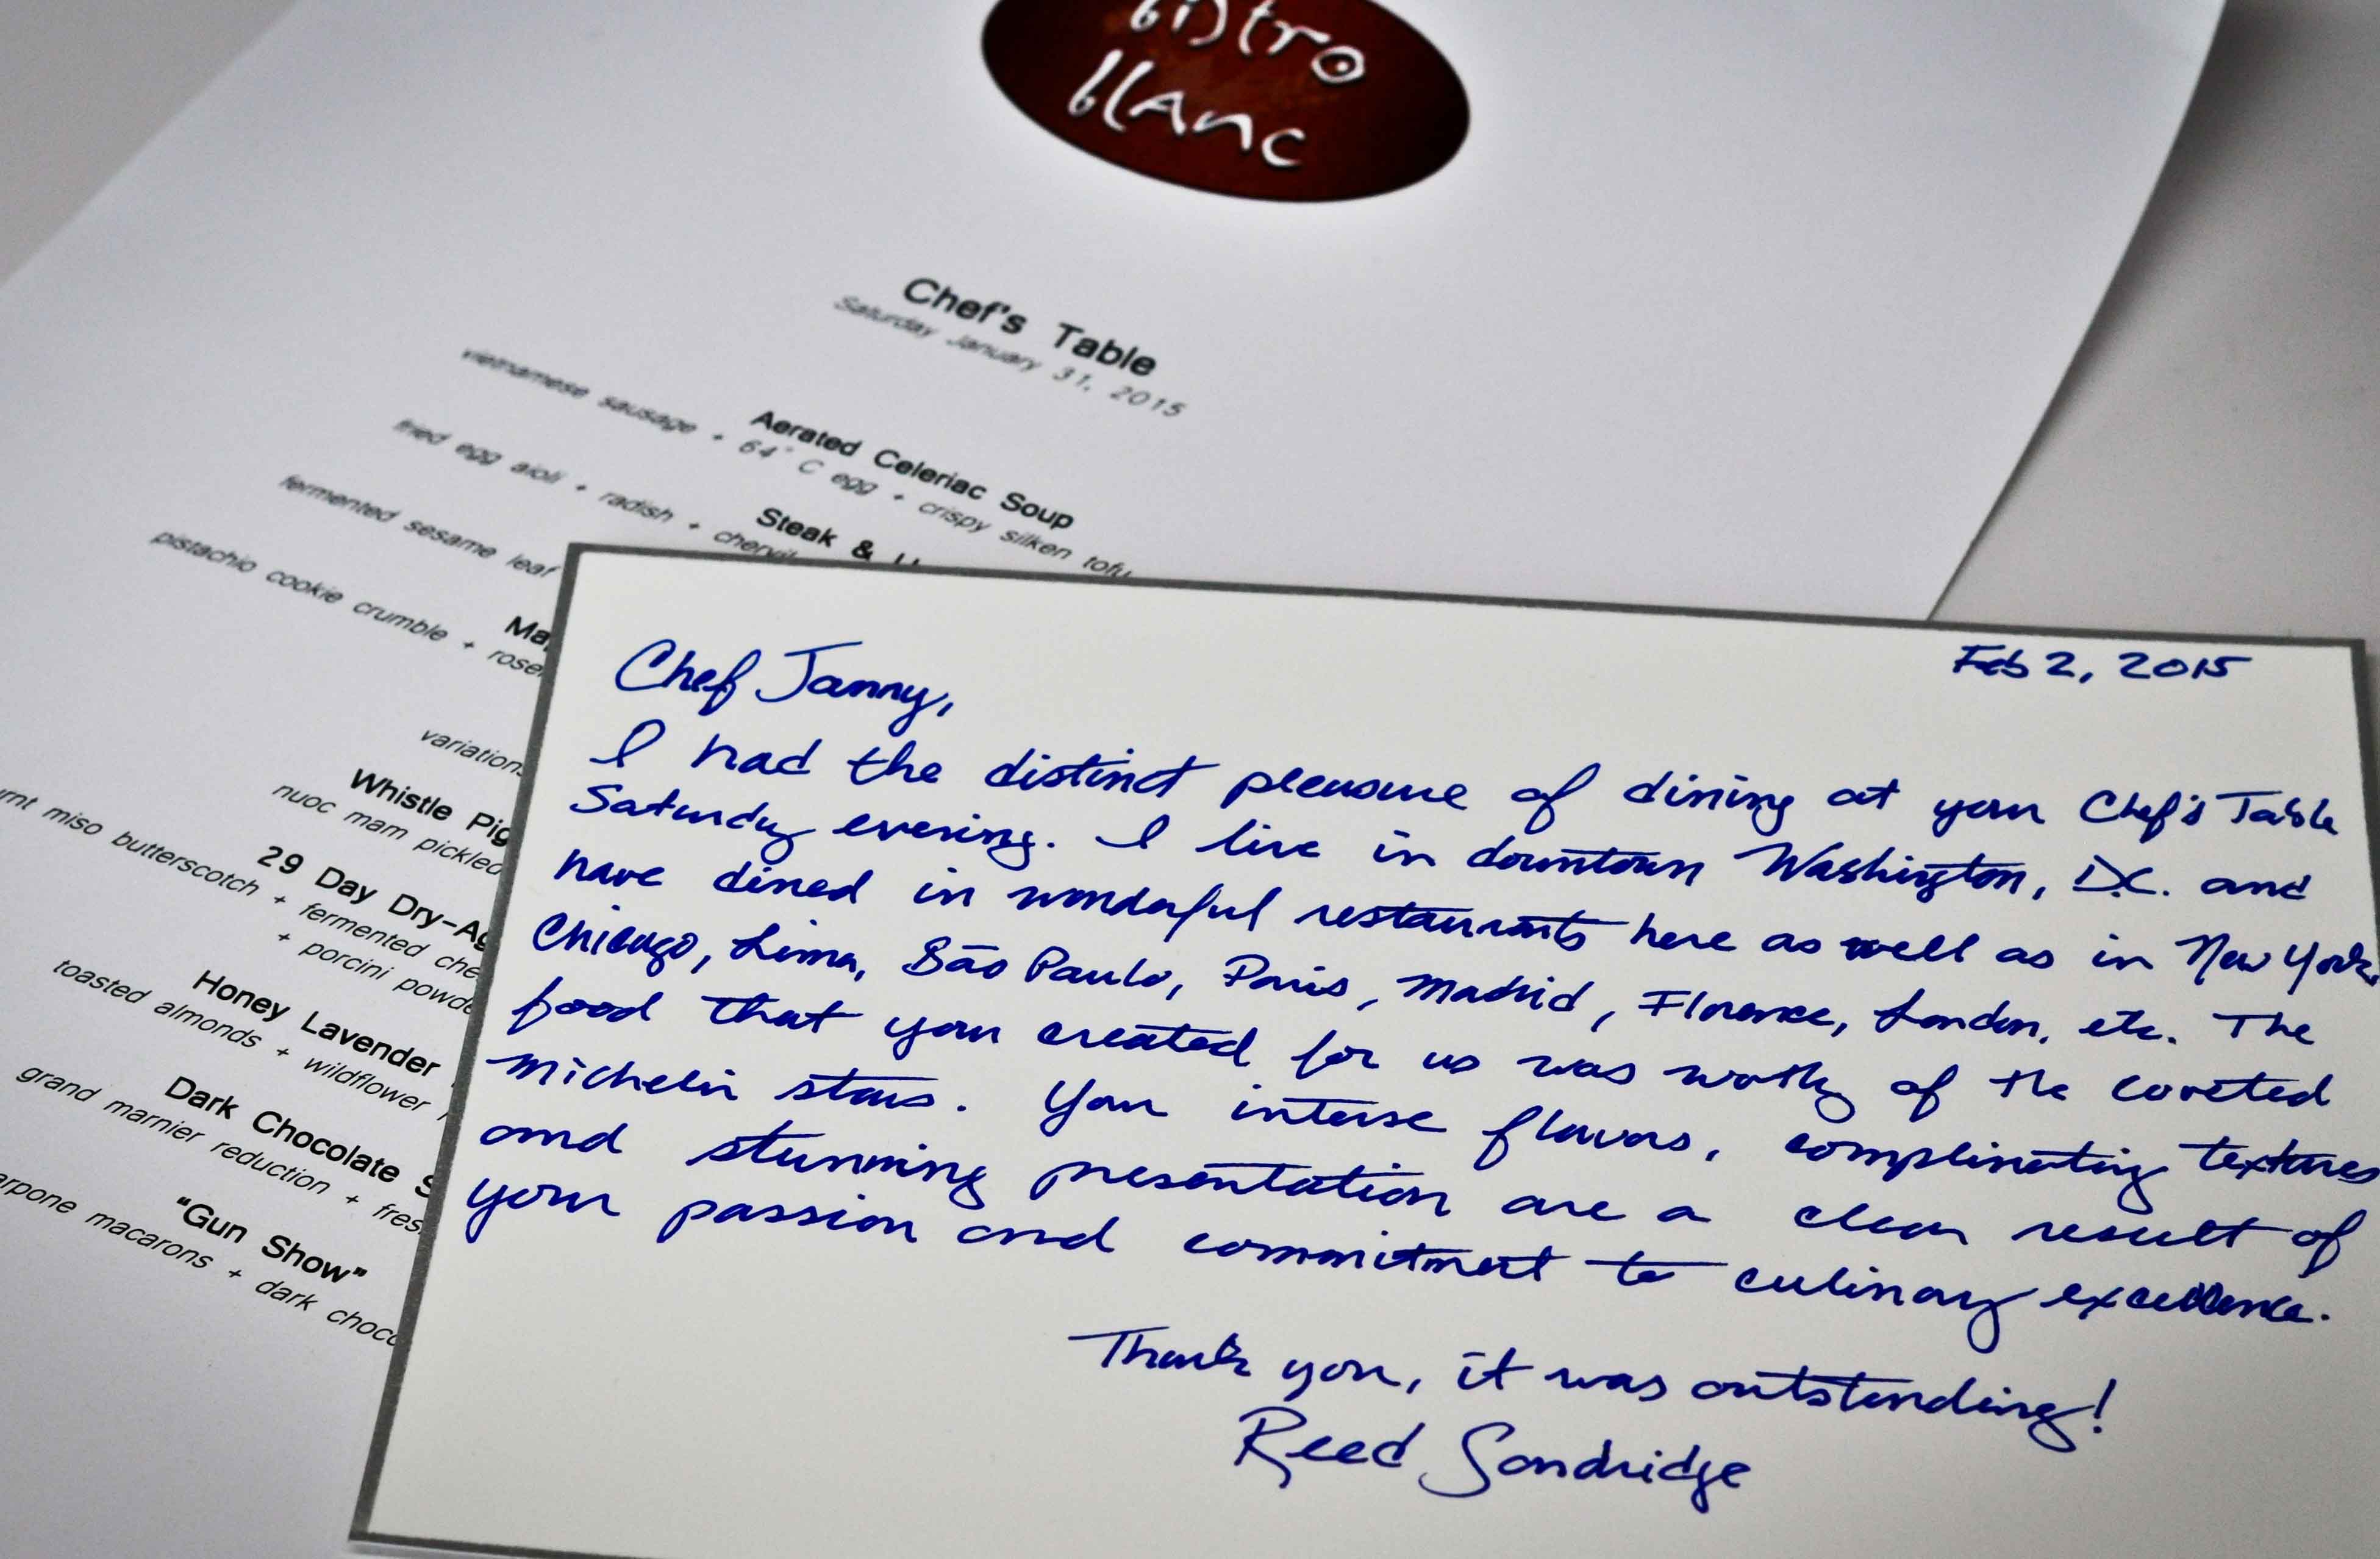 bistro
blanc
Chef's Table
Saturday January 31, 2015
Aerated Celeriac Soup
vietnamese sausage + 64° C egg + crispy silken tofu
Steak &
fried egg aioli + radish + chervil
fermented sesame leaf
pistachio cookie crumble +
variations
Whistle Pig
nuoc mam pickled
29 Day Dry-Ag
miso butterscotch + fermented che
+ porcini powde
Honey Lavender
toasted almonds + wildflower
Dark Chocolate S
grand marnier reduction + fres
"Gun Show"
macarons + dark choco
Feb 2, 2015
Chef Janny,
I had the distinct pleasure of dining at your Chef's Table
Saturday evening. I live in downtown Washington, D.C. and
have dined in wonderful restaurants here as well as in New York,
Chicago, Lima, São Paulo, Paris, Madrid, Florence, London, etc. The
food that you created for us was worthy of the coveted
Michelin stars. Your intense flavors, complimenting textures
and stunning presentation are a clear result of
your passion and commitment to culinary excellence.
Thank you, it was outstanding!
Reed Sandridge